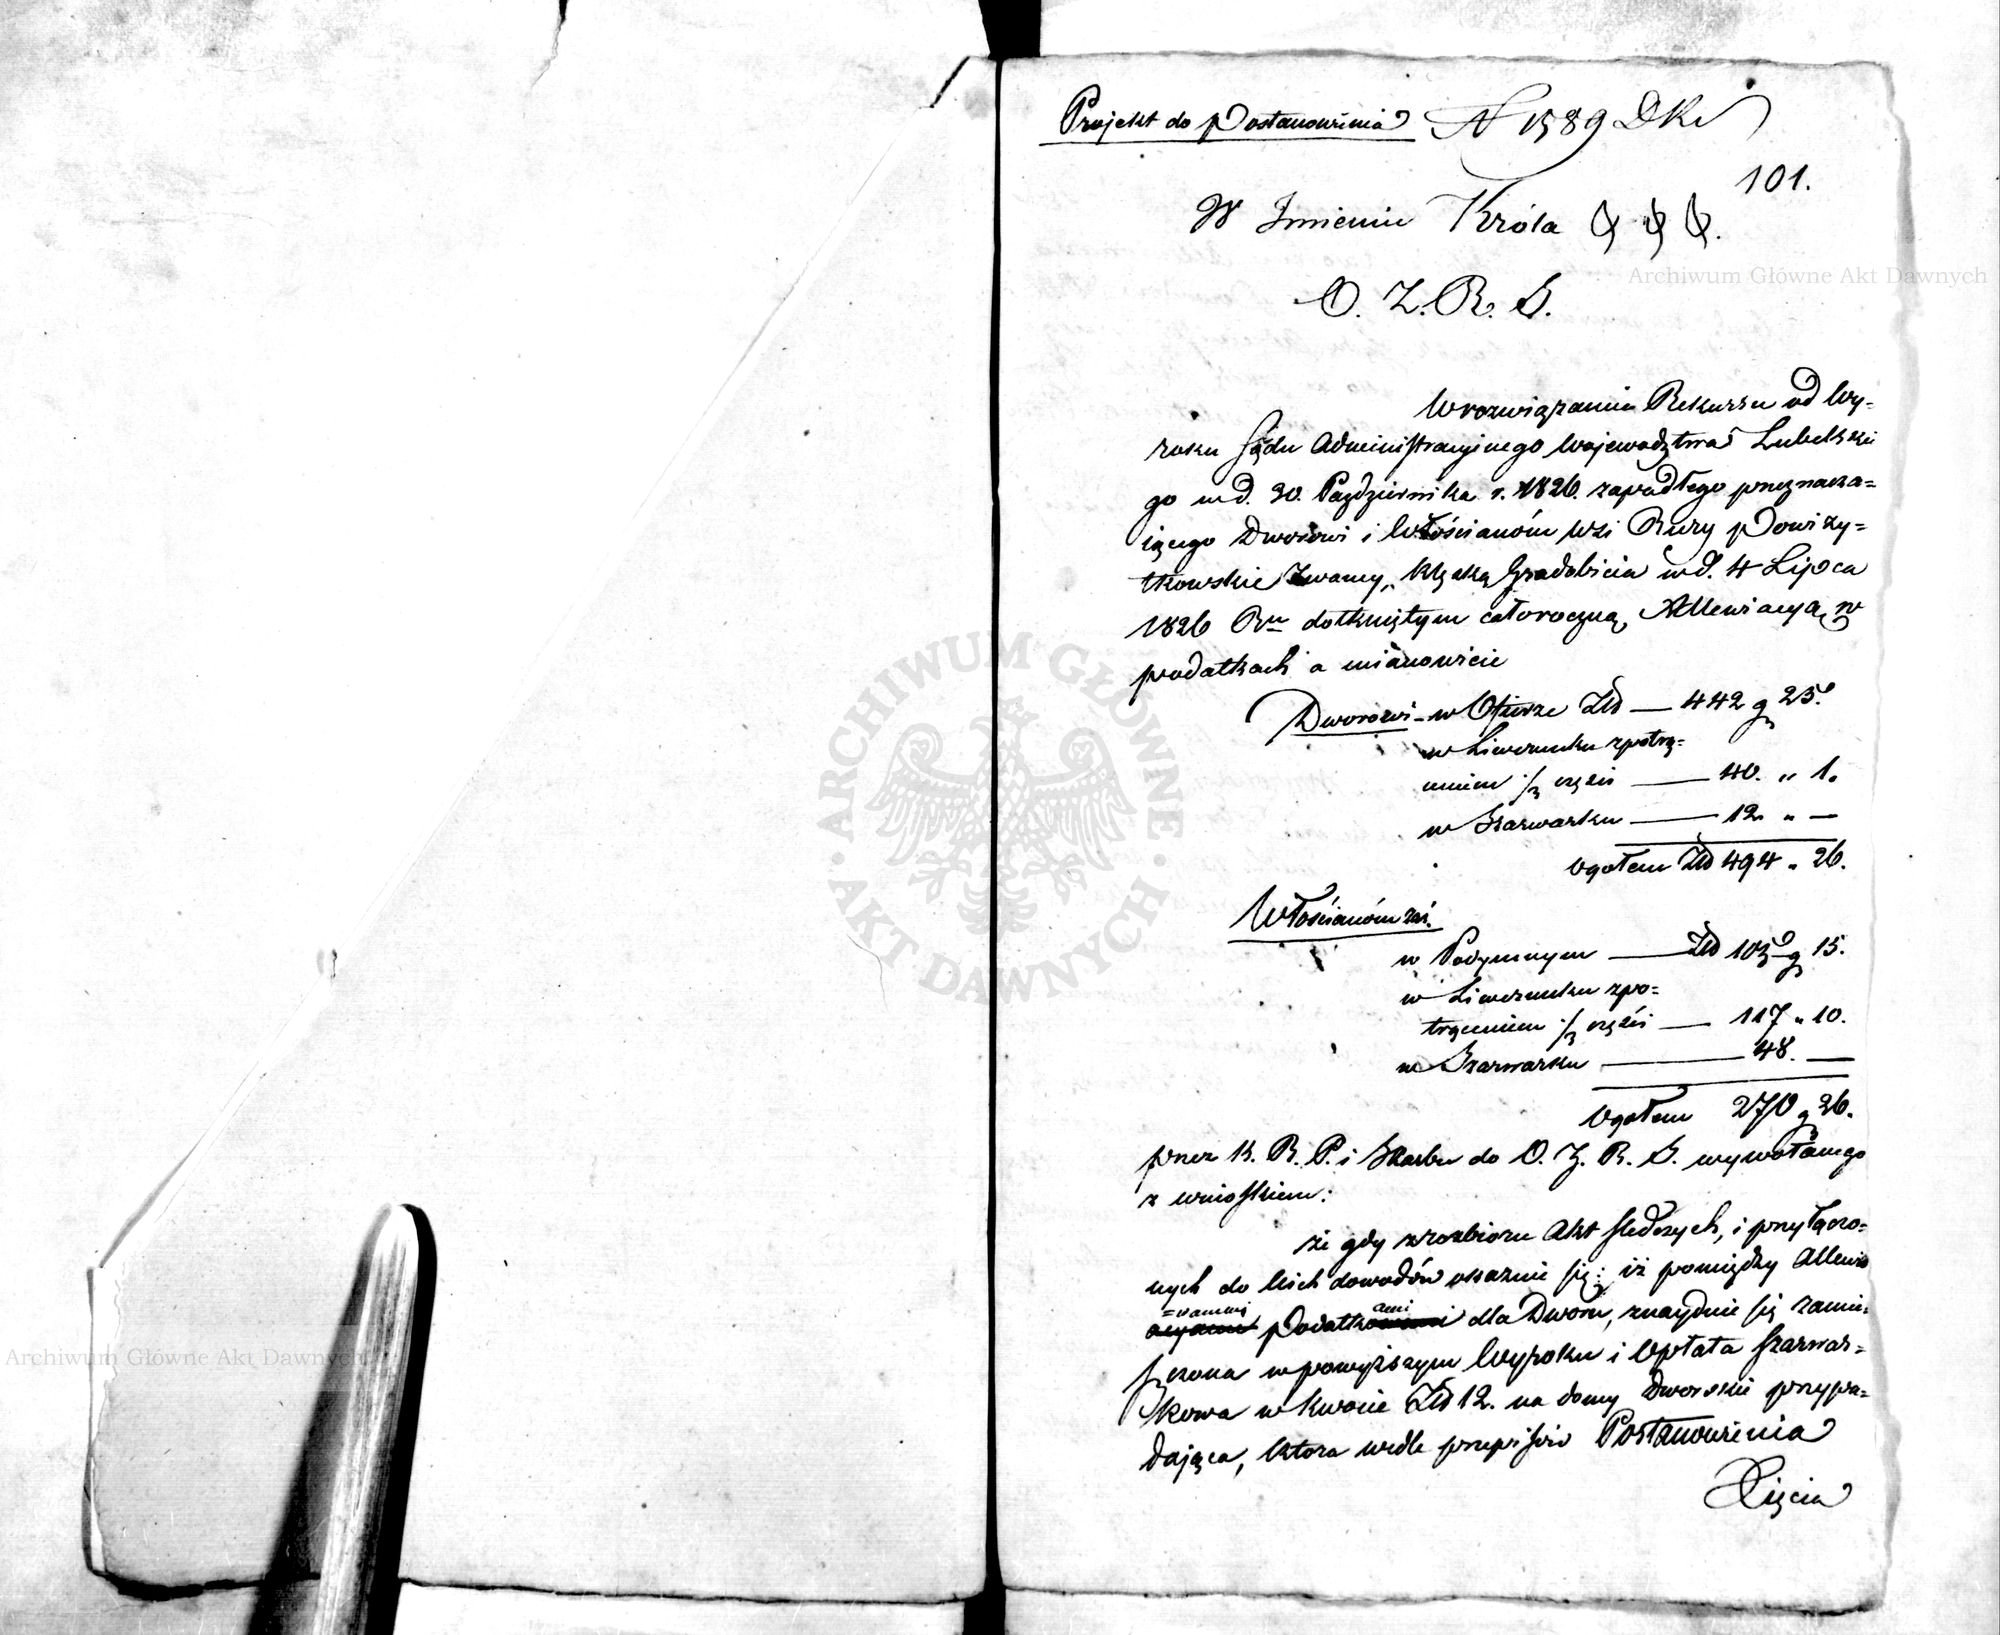 Projekt do Postanowienia N 1589 DKS
101.
W Imieniu Króla &c &c &c.
O. Z. R. S.
W rozwiązaniu Rekursu od Wy=
roku Sądu Administracyinego Województwa Lubelskie
go w d. 30. Października r. 1826. zapadłego przyznaia=
iącego Dworowi i Włościanóm Wsi Rury Powizy=
tkowskie zwaney, klęską Gradobicia w d. 4 Lipca
1826 Ru dotkniętym całoroczną Allewiacyą w
podatkach a mianowicie
Dworowi w Ofierze Złd — 442 g 25.
w Liwerunku z potrą=
ceniem 1/3 części — 40. " 1.
w Szarwarku — 12 " —
Ogółem Złd 494 " 26.
Włościanóm zaś.
w Podymnym — Złd 105 g 15.
w Liwerunku z po=
trąceniem 1/3 części — 117 " 10.
w Szarwarku — 48. —
Ogółem 270 g 26.
przez K. R. P. i Skarbu do O. Z. R. S. wywołanego
z wnioskiem:
że gdy z rozbioru Akt śledczych, i przyłączo=
nych do kich dowodów okazuie się: iż pomiędzy Allewio
=wanemi ami
acyami Podatkowemi dla Dworu, znayduie się zamie=
szczona w powyższym Wyroku i Opłata szarwar=
kowa w kwocie Złd 12. na domy Dworskie przypa=
dająca, która wedle przepisów Postanowienia
Xięcia